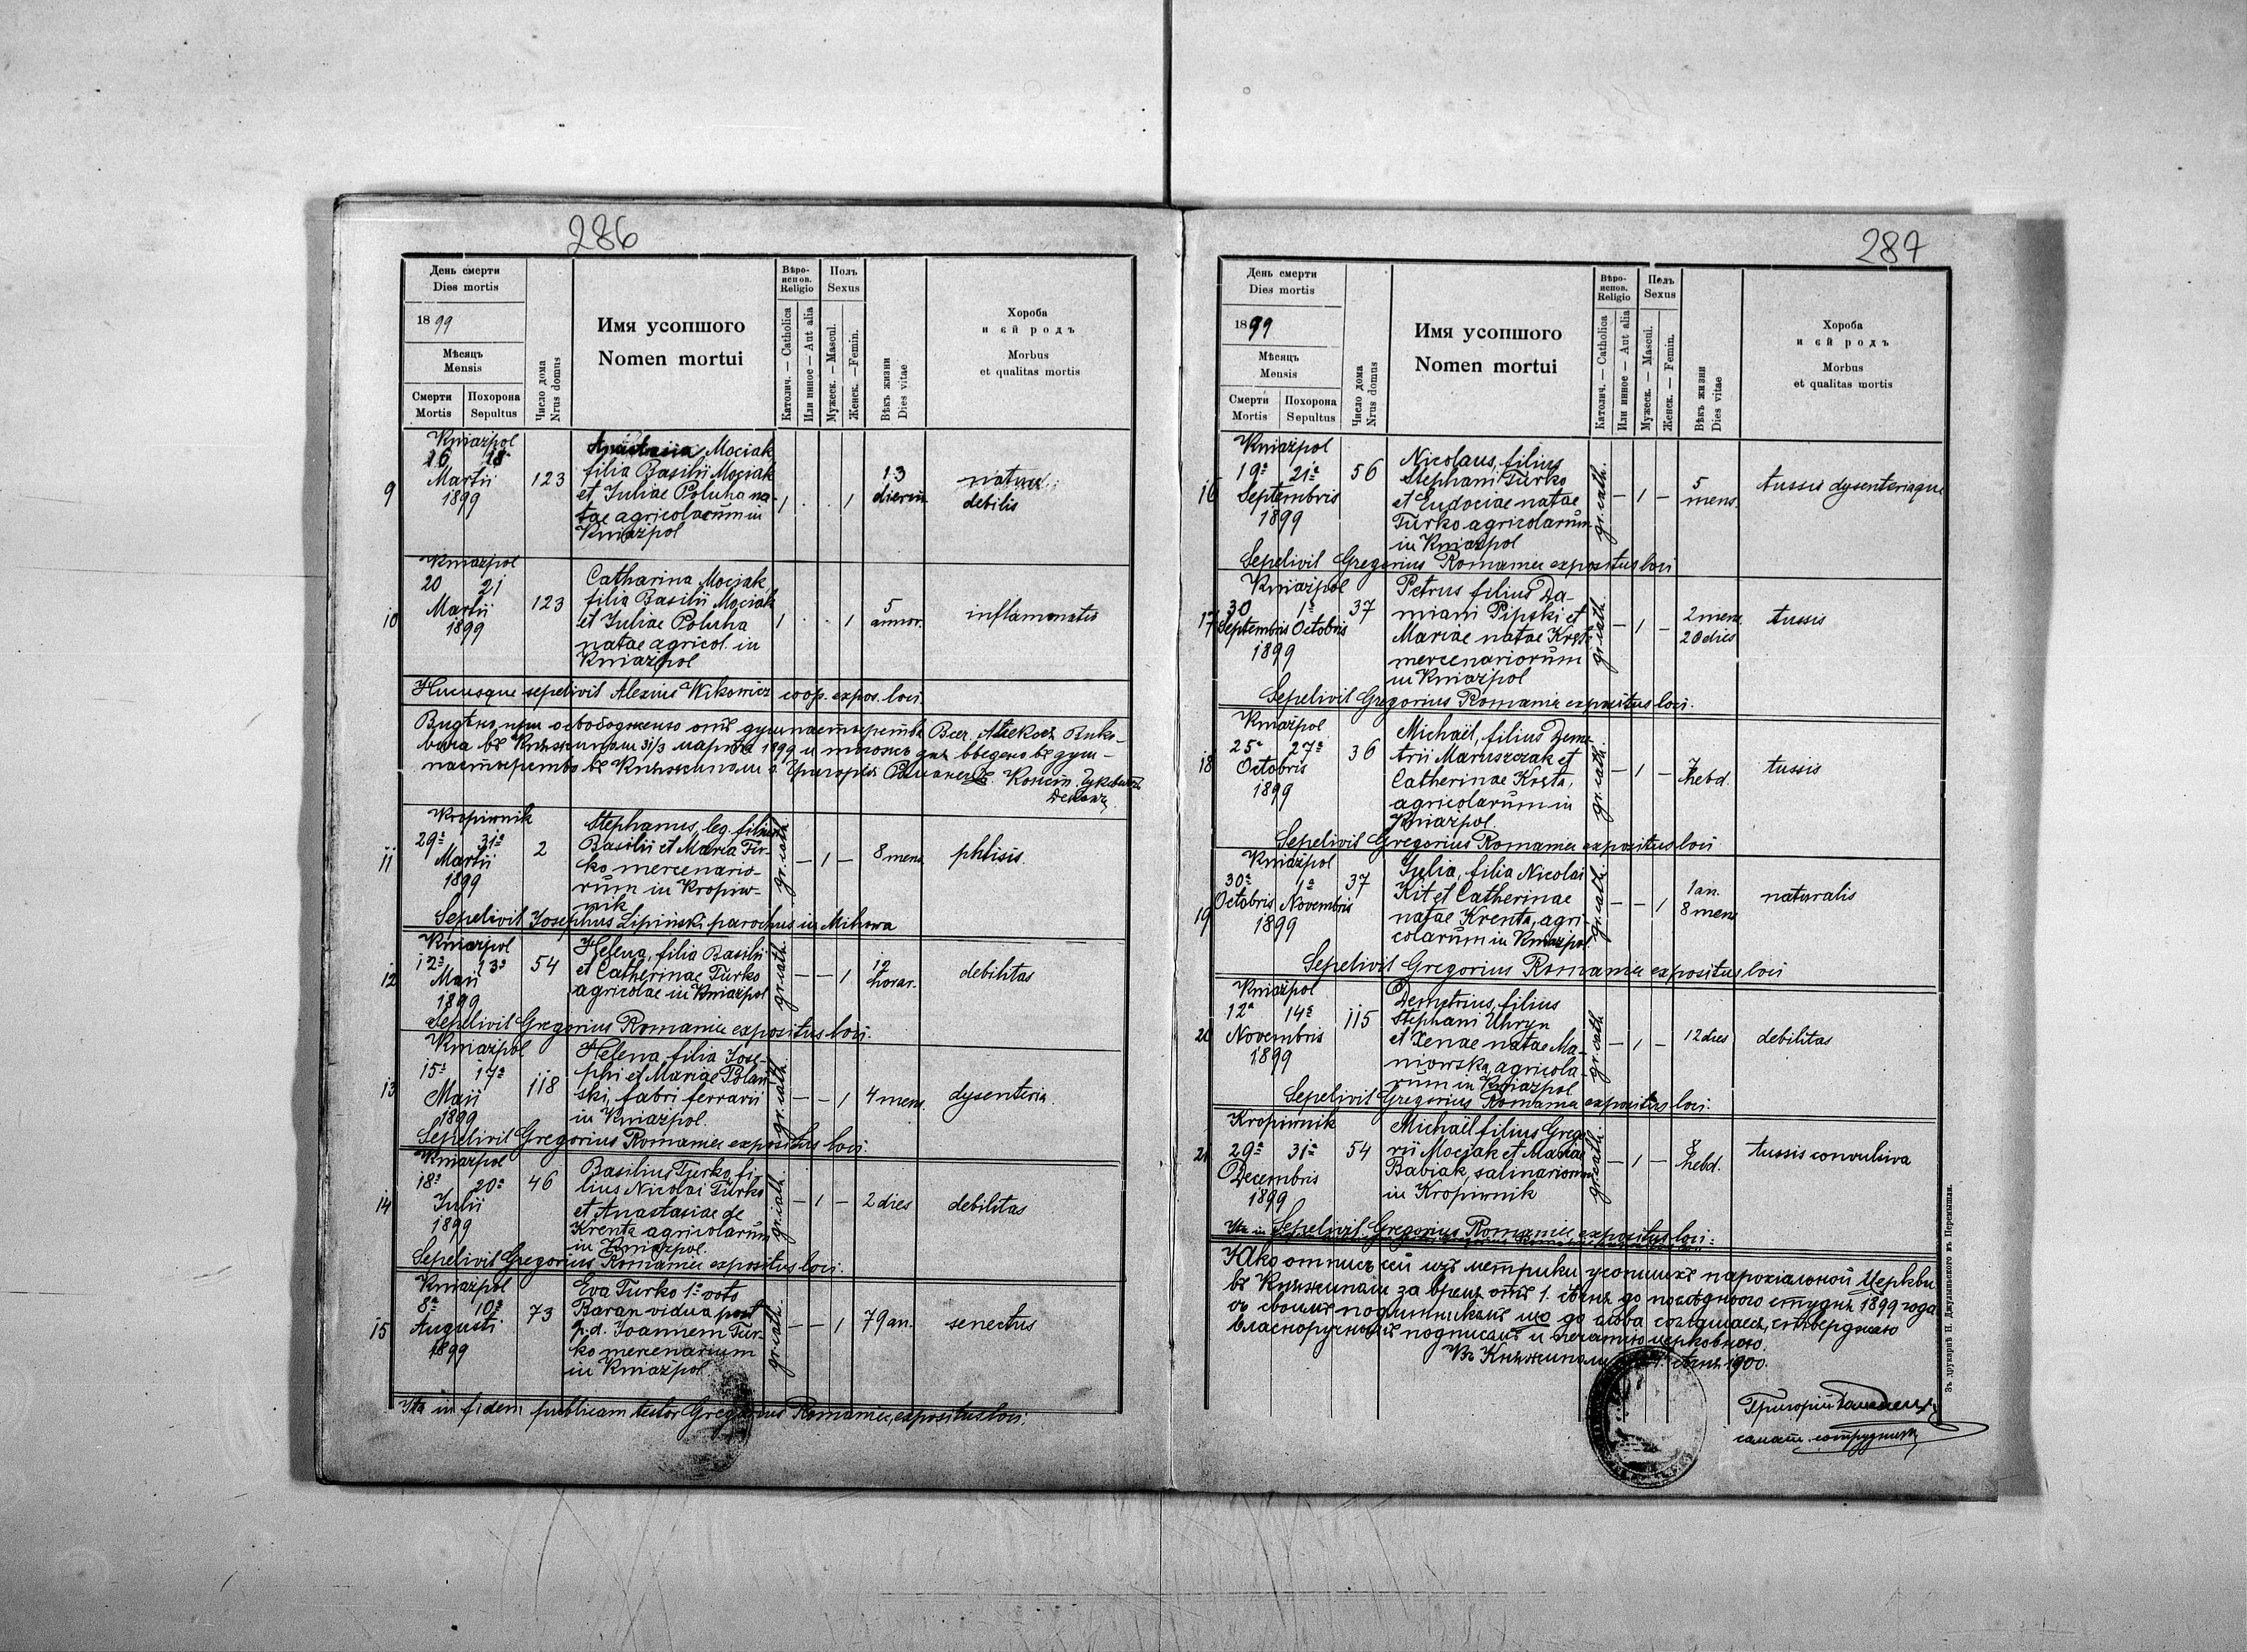 286
День смерти
Dies mortis
1899
Мѣсяцъ
Mensis
Смерти
Mortis
Похорона
Sepultus
Число дома
Nrus domus
Имя усопшого
Nomen mortui
Вѣро-
испов.
Religio
Католич. — Catholica
Или инное — Aut alia
Полъ
Sexus
Мужеск. — Mascul.
Женск. — Femin.
Вѣкъ жизни
Dies vitae
Хороба
и єй родъ
Morbus
et qualitas mortis
9
Kniażpol
16 18
Martii
1899
123
Anastasia Mociak,
filia Basilii Mociak
et Juliae Poluha na-
tae agricolarum in
Kniażpol
1 . . 1
13
dierum
debilis
10
Kniażpol
20 21
Martii
1899
123
Catharina Mociak,
filia Basilii Mociak
et Juliae Poluha
natae agricol. in
Kniażpol
1 . . 1
5
annor.
inflamonatis
Hucusque sepelivit Alexius Wikowicz coop. expos. loci.
11
Kropiwnik
29a 31a
Martii
1899
2
Stephanus, leg. filius
Basilii et Maria Tur-
ko mercenario-
rum in Kropiw-
nik
gr. cath.
— 1 —
8 mens.
phtisis.
Sepelivit Josephus Lipiński parochus in Mihowa
12
Kniażpol
12a 13a
Maii
1899
54
Helena, filia Basilii
et Catherinae Turko
agricolae in Kniażpol
gr. cath.
— — 1
12
horar.
debilitas
Sepelivit Gregorius Romanec expositus loci.
13
Kniażpol
15a 17a
Maii
1899
118
Helena, filia Jose-
phi et Mariae Polań-
ski, fabri ferrarii
in Kniażpol.
gr. cath.
— — 1
4 mens.
dysenteria.
Sepelivit Gregorius Romanec expositus loci.
14
Kniażpol
18a 20a
Julii
1899
46
Basilius Turko, fi-
lius Nicolai Turko
et Anastasiae de
Krenta agricolarum
in Kniażpol.
gr. cath.
— 1 —
2 dies
debilitas
Sepelivit Gregorius Romanec expositus loci.
15
Kniażpol
8a 10a
Augusti
1899
73
Eva Turko 1o voto
Baran vidua post
p.d. Joannem Tur-
ko mercenarium
in Kniażpol
gr. cath.
— — 1
79 an.
senectus
Ita in fidem publicam testor Gregorius Romanec, expositus loci.
287
День смерти
Dies mortis
1899
Мѣсяцъ
Mensis
Смерти
Mortis
Похорона
Sepultus
Число дома
Nrus domus
Имя усопшого
Nomen mortui
Вѣро-
испов.
Religio
Католич. — Catholica
Или инное — Aut alia
Полъ
Sexus
Мужеск. — Mascul.
Женск. — Femin.
Вѣкъ жизни
Dies vitae
Хороба
и єй родъ
Morbus
et qualitas mortis
16
Kniażpol
19a 21a
Septembris
1899
56
Nicolaus, filius
Stephani Turko
et Eudociae natae
Turko agricolarum
in Kniażpol
gr. cath.
— 1 —
5
mens.
tussis dysenteriaque
Sepelivit Gregorius Romanec expositus loci
17
Kniażpol
30 1a
Septembris Octobris
1899
37
Petrus filius Da-
miani Pipski et
Mariae natae Kręt.
mercenariorum
in Kniażpol
gr. cath.
— 1 —
2 mens.
20 dies
tussis
Sepelivit Gregorius Romanec expositus loci.
18
Kniażpol
25a 27a
Octobris
1899
36
Michaël, filius Deme-
trii Maruszczak et
Catherinae Kręta,
agricolarum in
Kniażpol.
gr. cath.
— 1 —
7
hebd.
tussis
Sepelivit Gregorius Romanec expositus loci
19
Kniażpol
30a 1a
Octobris Novembris
1899
37
Julia, filia Nicolai
Kit et Catherinae
natae Krenta, agri-
colarum in Kniażpol
gr. cath.
— — 1
1 an.
8 mens
naturalis
Sepelivit Gregorius Romanec expositus loci
20
Kniażpol
12a 14a
Novembris
1899
115
Demetrius, filius
Stephani Uhryn
et Xenae natae Ma-
niowska, agricola-
rum in Kniażpol
gr. cath.
— 1 —
12 dies
debilitas
Sepelivit Gregorius Romanec expositus loci.
21
Kropiwnik
29a 31a
Decembris
1899
54
Michaël filius Grego-
rii Mocjak et Maria
Babiak, salinariorum
in Kropiwnik
gr. cath.
— 1 —
8
hebd.
tussis convulsiva
Sepelivit Gregorius Romanec expositus loci.
Яко отпись сей изъ метрики усопшихъ парохіальной Церкви
въ Княжиполи за время отъ 1. січня до послѣдного студня 1899 года
съ своимъ подлинникомъ що до слова согашаєсь, ствверджаю
власноручнымъ подписомъ и печатію церковною.
Въ Княжиполи 1. січня 1900.
Григорій Романецъ
сотрудникъ
Зъ друкарнѣ Н. Джулыньского въ Перемышли.